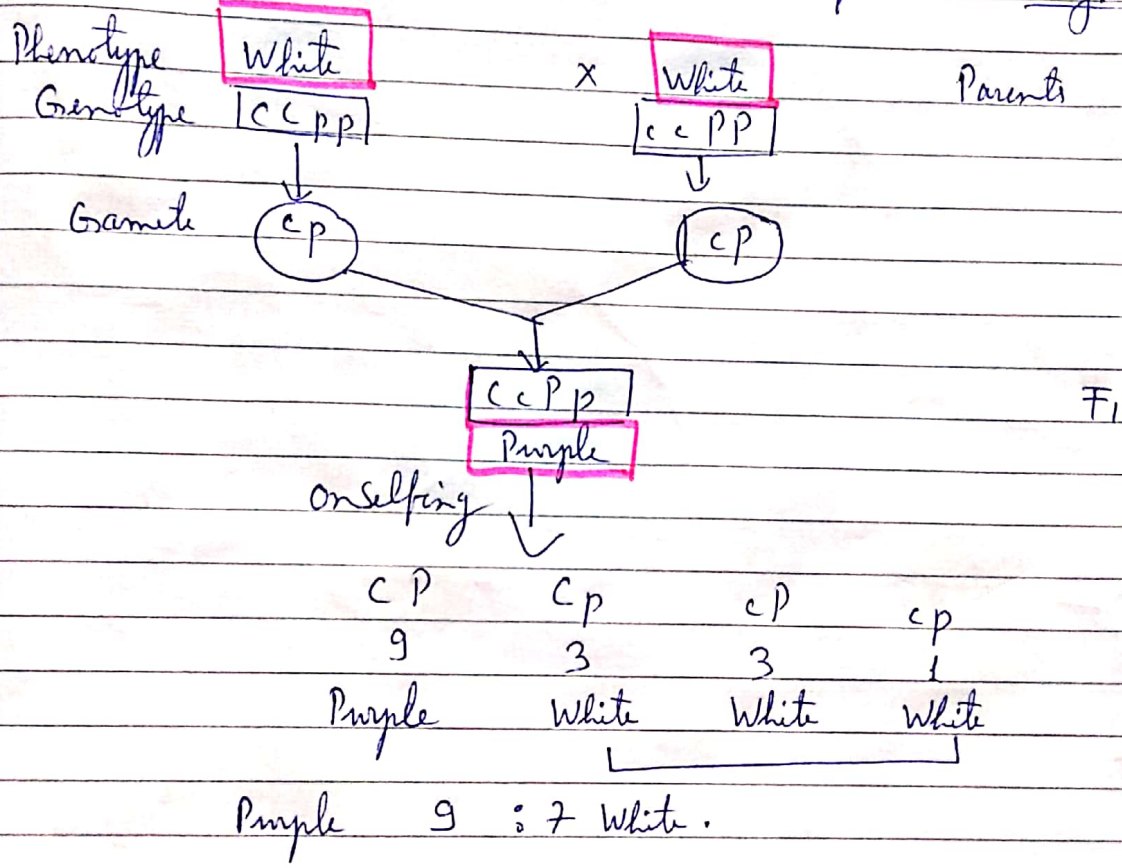 Phenotype White x White Parents
Genotype CCpp ccPP
Gamete Cp cP
CcPp F1
Purple
on Selfing
CP Cp cP cp
9 3 3 1
Purple White White White
Purple 9 : 7 White.